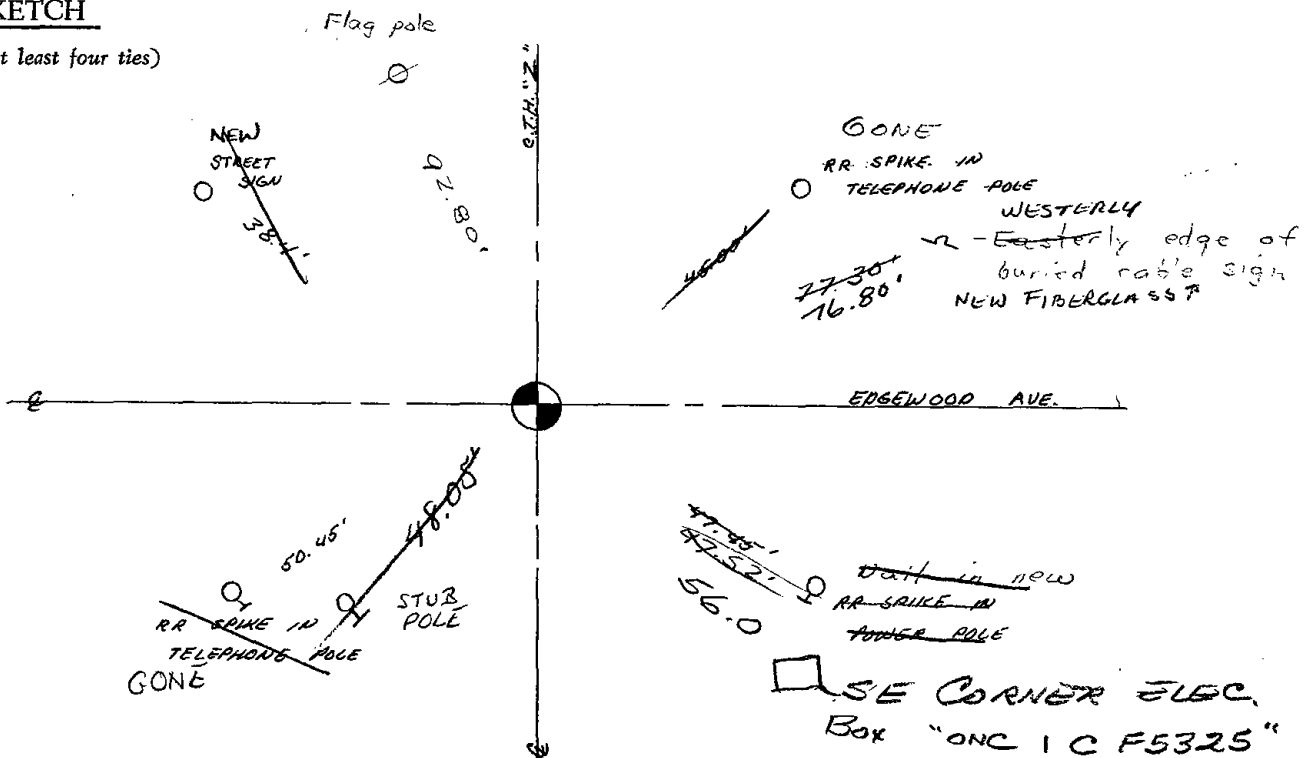 KETCH
t least four ties)
Flag pole
C.T.H. "Z"
NEW
STREET
SIGN
38.1'
92.80'
GONE
RR SPIKE IN
TELEPHONE POLE
45.00'
WESTERLY
Easterly edge of
buried cable sign
NEW FIBERGLASS
77.30'
76.80'
EDGEWOOD AVE.
50.45'
48.05'
RR SPIKE IN
TELEPHONE POLE
GONE
STUB
POLE
47.45'
47.52'
56.0
Nail in new
RR SPIKE IN
POWER POLE
SE CORNER ELEC.
BOX "ONC 1 C F5325"